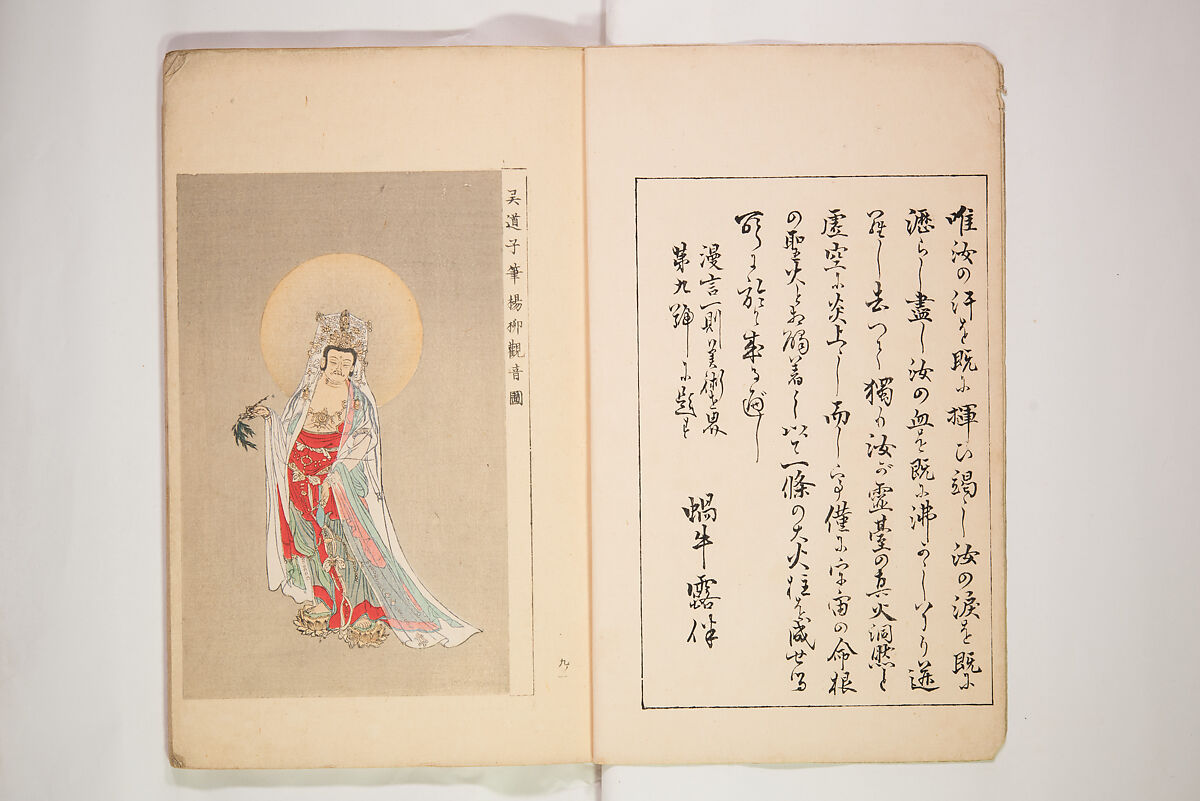 唯汝の汗を既に揮ひ竭し汝の涙を既に
瀝らし盡し汝の血を既に沸かし
し去つて獨り汝が靈臺の真火洞然と
虚空に炎上し而して僅に宇宙の命根
の聖火と相觸着し以て一條の大火柱を成せる
に於て成る
漫言一則美術世界
第九號に題す
蝸牛露伴
吴道子筆楊柳觀音圖
九ノ一